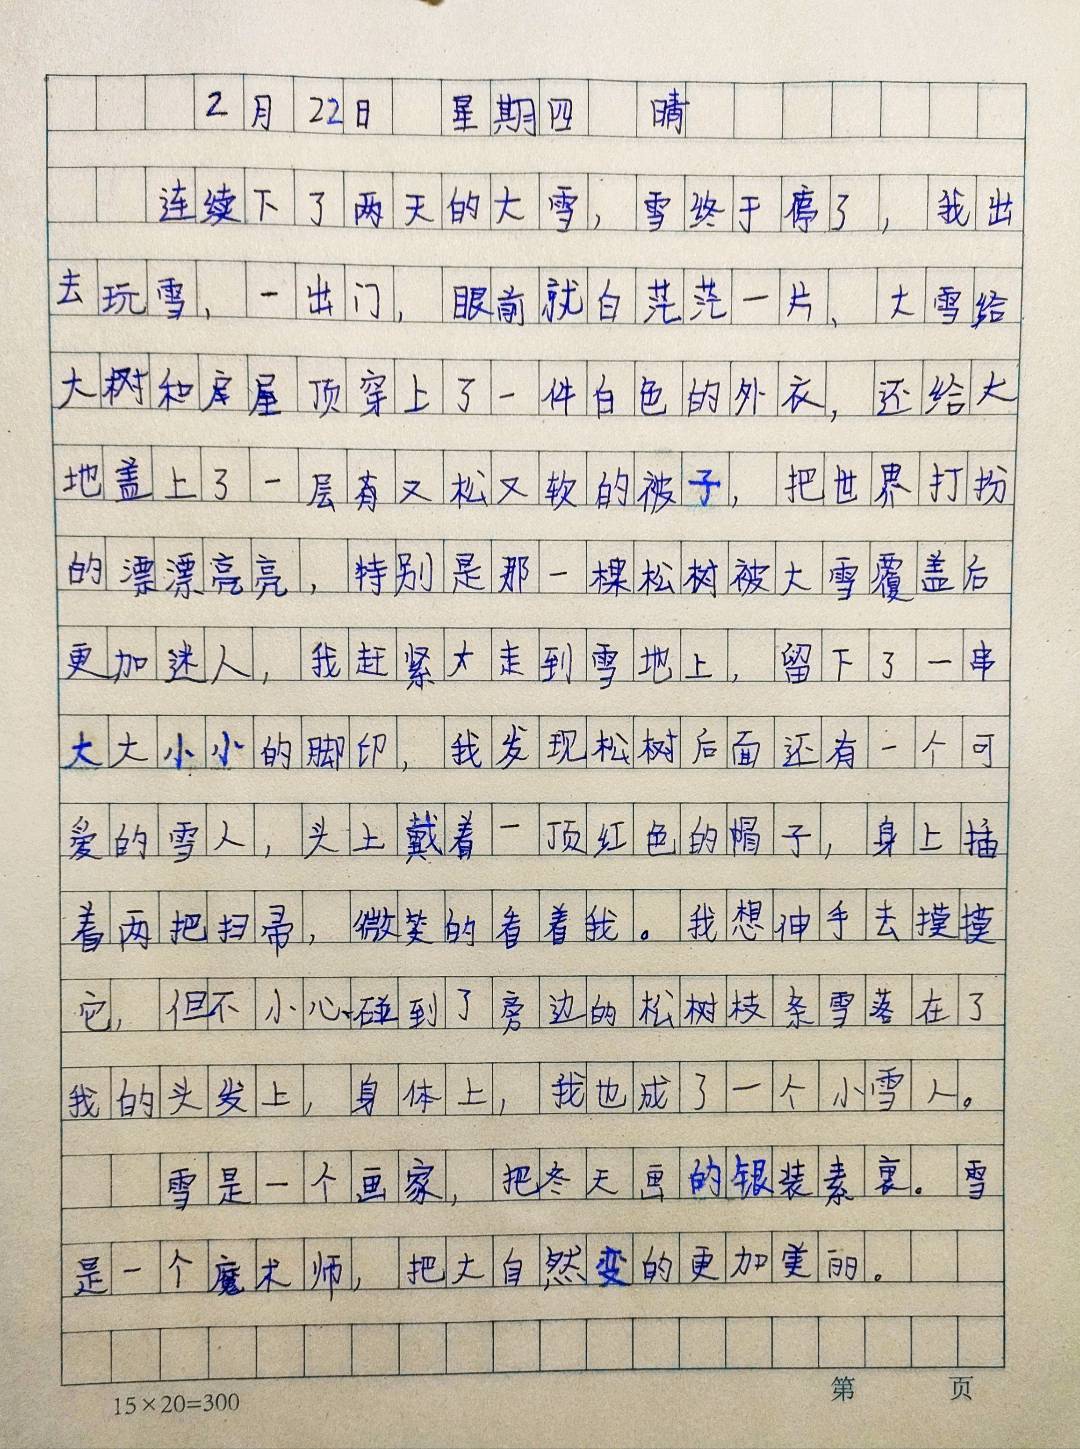 2月22日 星期四 晴
连续下了两天的大雪，雪终于停了，我出
去玩雪，一出门，眼前就白茫茫一片、大雪给
大树和房屋顶穿上了一件白色的外衣，还给大
地盖上了一层有又松又软的被子，把世界打扮
的漂漂亮亮，特别是那一棵松树被大雪覆盖后
更加迷人，我赶紧大走到雪地上，留下了一串
大大小小的脚印，我发现松树后面还有一个可
爱的雪人，头上戴着一顶红色的帽子，身上插
着两把扫帚，微笑的看着我。我想伸手去摸摸
它，但不小心、碰到了旁边的松树枝条雪落在了
我的头发上，身体上，我也成了一个小雪人。
雪是一个画家，把冬天画的银装素裹。雪
是一个魔术师，把大自然变的更加美丽。
15×20=300
第 页